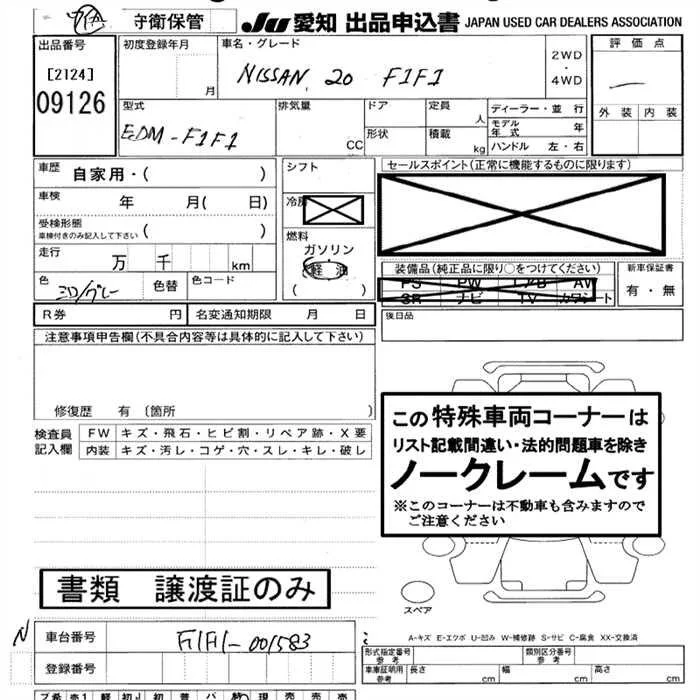 守衛保管 JU 愛知 出品申込書 JAPAN USED CAR DEALERS ASSOCIATION
出品番号
[2124]
09126
初度登録年月
月
車名・グレード
NISSAN 20 F1F1
2WD
・
4WD
評価点
外装 内装
型式
EDM-F1F1
排気量
CC
ドア
形状
定員
人
積載
kg
ディーラー・並行
モデル年式 年
ハンドル 左・右
車歴 自家用・( )
車検 年 月( 日)
受検形態
車検付きのみ記入して下さい ( )
走行 万 千 km
色
色替
色コード
シフト
冷房
燃料
ガソリン
軽油
( )
セールスポイント(正常に機能するものに限ります)
装備品(純正品に限り○をつけてください)
PS PW エアB AW
SR ナビ TV カワシート
新車保証書
有・無
R券 円 名変通知期限 月 日
後日品
注意事項申告欄(不具合内容等は具体的に記入して下さい)
修復歴 有 〔箇所 〕
検査員
記入欄
FW キズ・飛石・ヒビ割・リペア跡・X要
内装 キズ・汚レ・コゲ・穴・スレ・キレ・破レ
この特殊車両コーナーは
リスト記載間違い・法的問題車を除き
ノークレームです
※このコーナーは不動車も含みますので
ご注意ください
書類 譲渡証のみ
スペア
A-キズ E-エクボ U-凹み W-補修跡 S-サビ C-腐食 XX-交換済
N
車台番号 F1F1-001583
登録番号
形式指定番号
参考
類別区分番号
参考
車庫証明用
参考
長さ cm 幅 cm 高さ cm